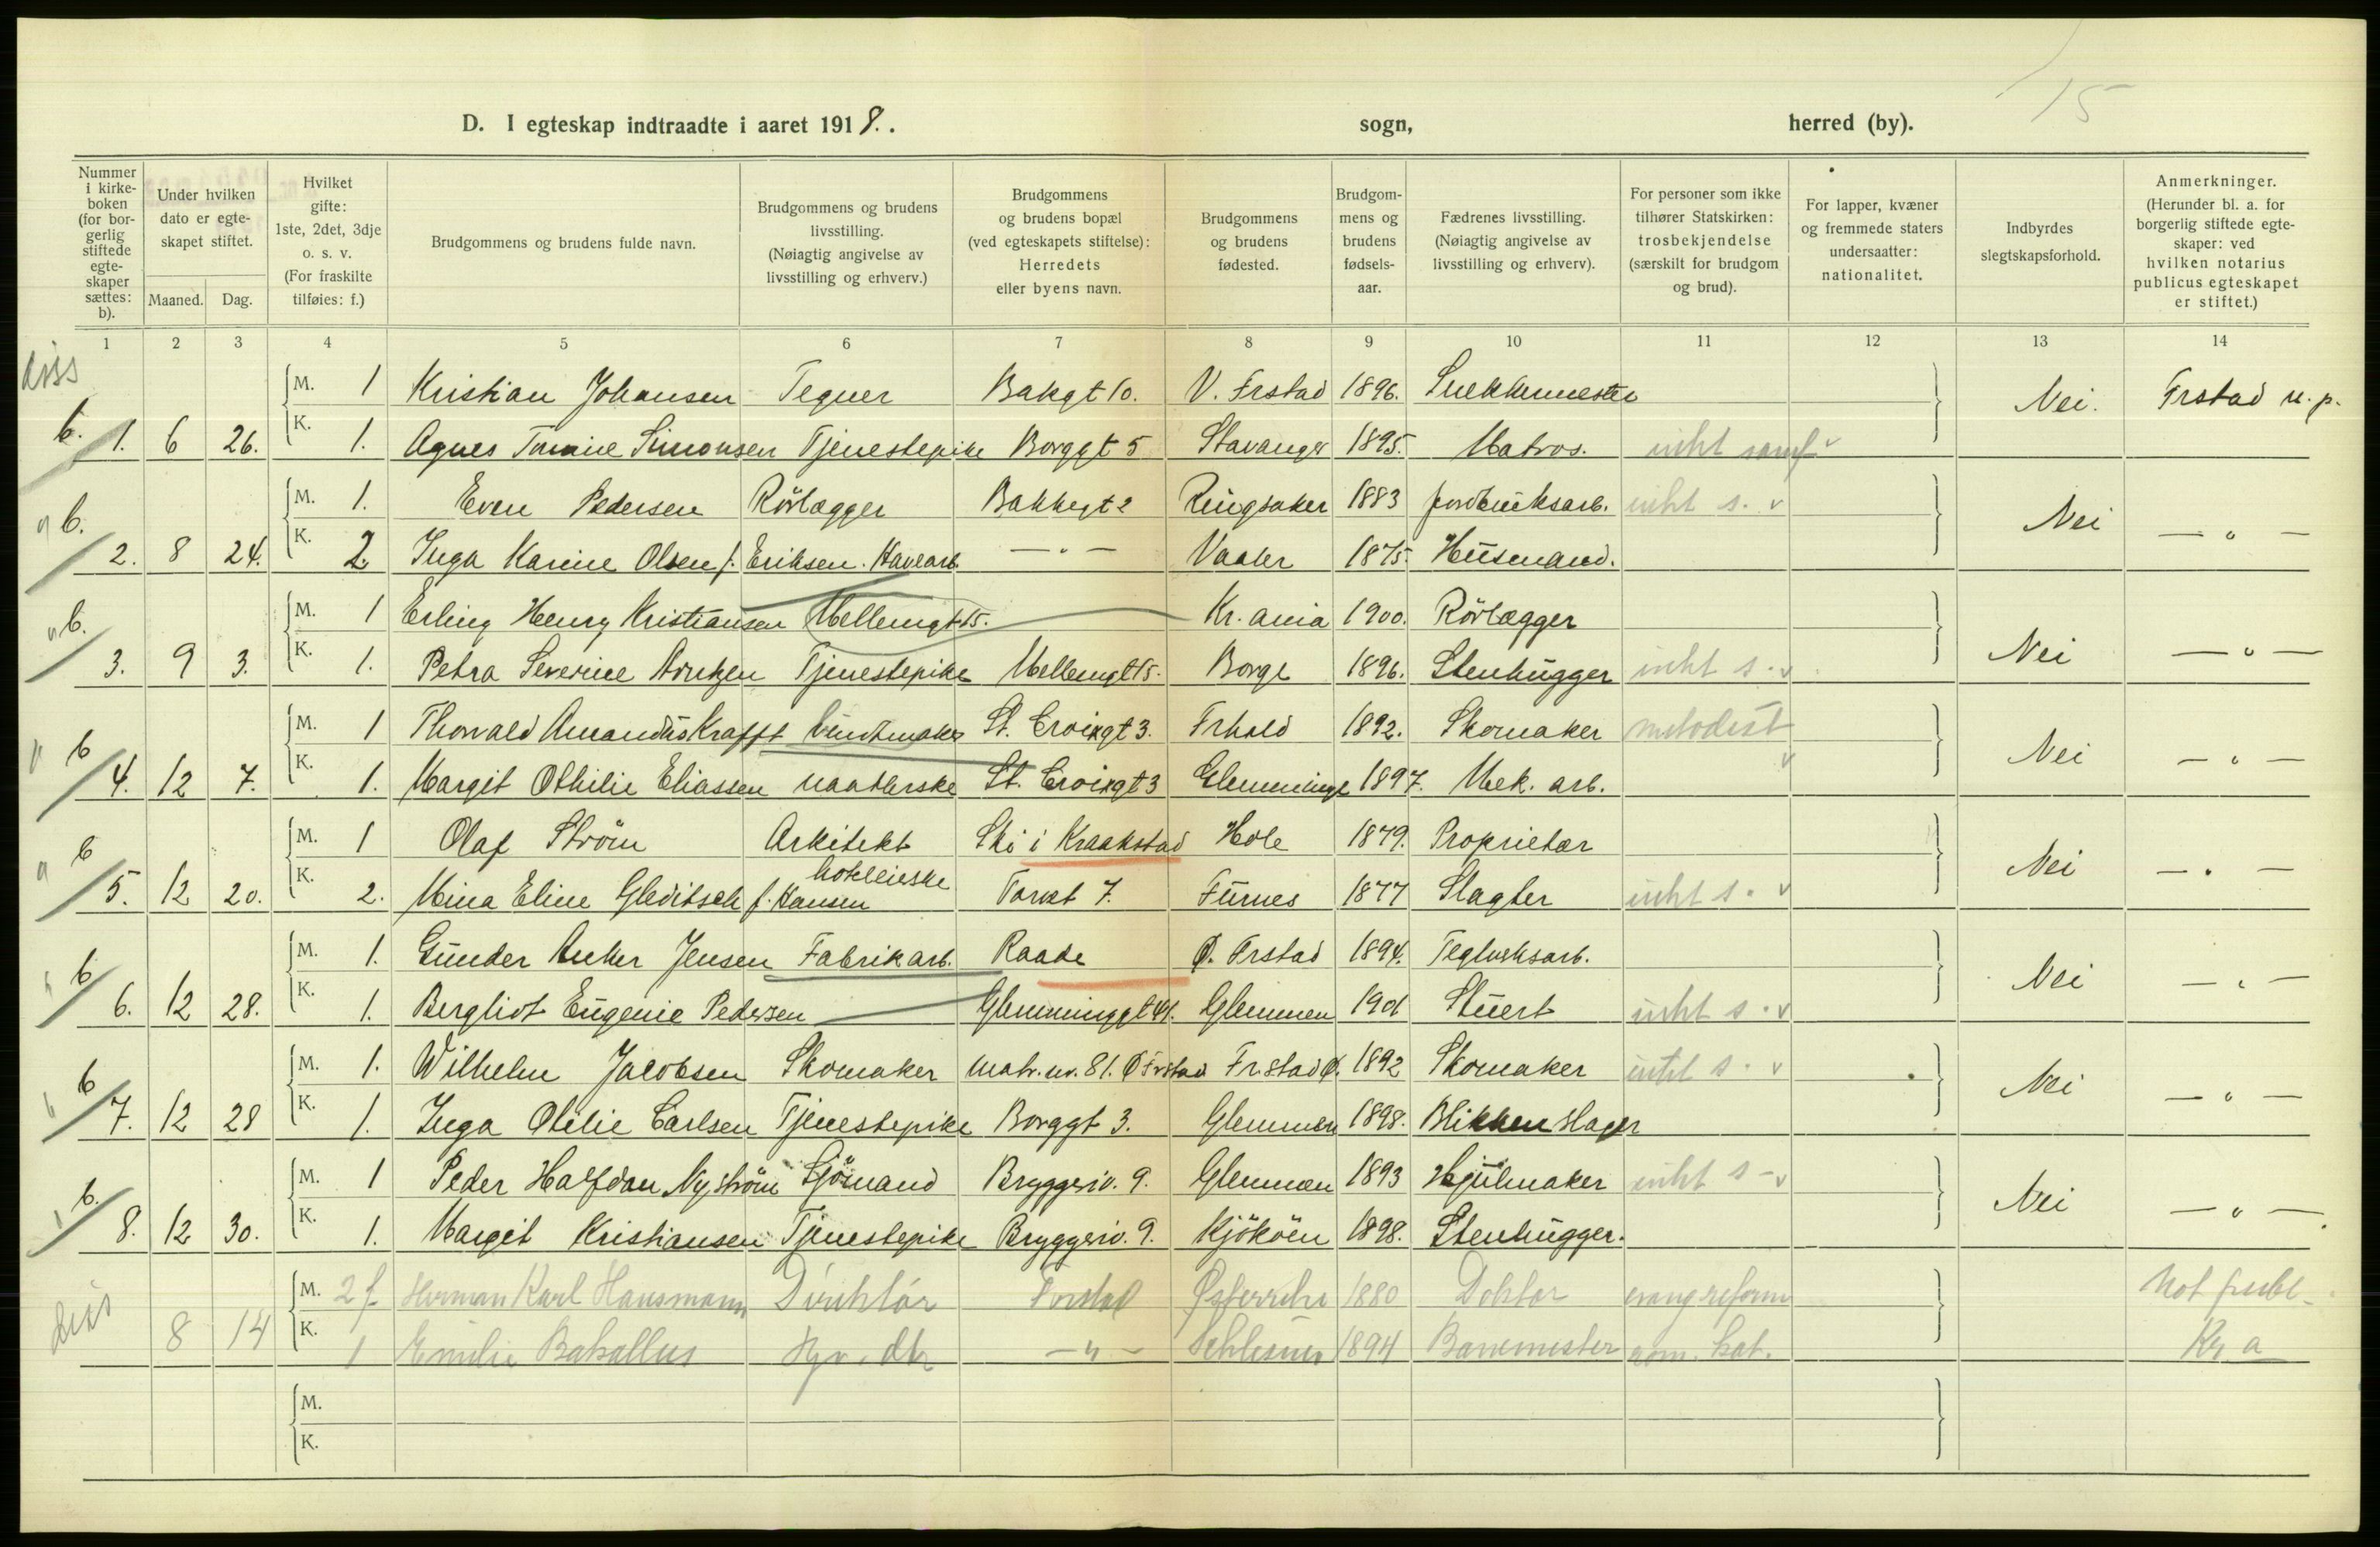 15
D. I egteskap indtraadte i aaret 1918. . sogn, herred (by).
Nummer i kirke-boken (for bor-gerlig stiftede egte-skaper sættes: b).
Under hvilken dato er egte-skapet stiftet.
Maaned. Dag.
Hvilket gifte: 1ste, 2det, 3dje o. s. v. (For fraskilte tilføies: f.)
Brudgommens og brudens fulde navn.
Brudgommens og brudens livsstilling. (Nøiagtig angivelse av livsstilling og erhverv.)
Brudgommens og brudens bopæl (ved egteskapets stiftelse): Herredets eller byens navn.
Brudgommens og brudens fødested.
Brudgom-mens og brudens fødsels-aar.
Fædrenes livsstilling. (Nøiagtig angivelse av livsstilling og erhverv).
For personer som ikke tilhører Statskirken: trosbekjendelse (særskilt for brudgom og brud).
For lapper, kvæner og fremmede staters undersaatter: nationalitet.
Indbyrdes slegtskapsforhold.
Anmerkninger. (Herunder bl. a. for borgerlig stiftede egte-skaper: ved hvilken notarius publicus egteskapet er stiftet.)
1 2 3 4 5 6 7 8 9 10 11 12 13 14
diss
M. 1 Kristian Johansen Tegner Bakgt 10. V. Frstad 1896. Nei. Frstad n. p.
b. 1. 6 26. K. 1. Agnes Simonsen Tjenestepike Borggt 5 Stavanger 1895. Matros.
M. 1. Even Pedersen Rörlægger Bakkegt 2 Ringsaker 1883 Jordbruksarb. Nei — " —
" b. 2. 8 24. K. 2 Inga Karine Olsen f. Eriksen. Havearb. — " — Vaaler 1875. Husmand.
M. 1 Erling Henry Kristiansen Mellemgt 15. Kr. ania 1900. Rörlægger Nei — " —
" b. 3. 9 3. K. 1. Petra Severine Arntzen Tjenestepike Mellemgt 15. Borge 1896. Stenhugger
M. 1 Thorvald Amandus Krafft Buntmaker St. Croixgt 3. Frhald 1892. Skomaker metodist Nei — " —
" b 4. 12 7. K. 1. Margit Othilie Eliassen naatlerske St. Croixgt 3 Glemminge 1897. Mek. arb.
M. 1 Olaf Ström Arkitekt Ski i Kraakstad Hole 1879. Proprietær Nei — " —
" b 5. 12 20. K. 2. Mina Eline Gleditsch f. Hansen Torvet 7. Furnes 1877 Slagter
M. 1. Gunder Anker Jensen Fabrikarb. Raade Ø. Frstad 1894. Teglverksarb. Nei — " —
" b 6. 12 28. K. 1. Bergliot Eugenie Pedersen Glemminggt 41. Glemmen 1901 Stuert
M. 1. Wilhelm Jacobsen Skomaker matr. nr. 81. Ø Frstad Fr.stad Ø. 1892 Skomaker Nei — " —
" b 7. 12 28 K. 1. Inga Otilie Carlsen Tjenestepike Borggt 3. Glemmen 1898. Blikkenslager
M. 1 Peder Halfdan Nyström Sjömand Bryggeriv. 9. Glemmen 1893 Hjulmaker Nei — " —
" b. 8. 12 30. K. 1. Margit Kristiansen Tjenestepike Bryggeriv. 9. Kjököen 1898. Stenhugger.
M. 2 f. Herman Karl Hausmann Direktör Frstad 1880 Doktor evang reform Not publ
diss 8 14 K. 1 Emilie — " — 1894 Banemester rom. kat. Kr. a
M.
K.